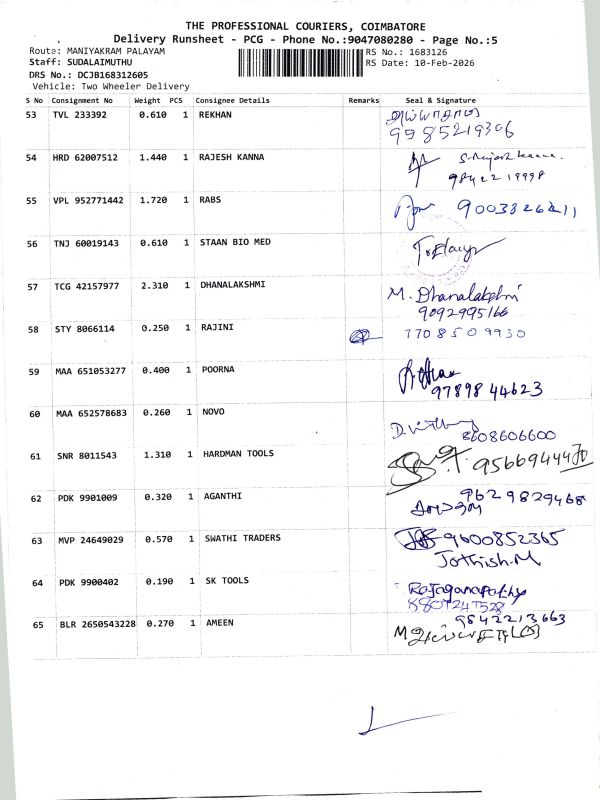 THE PROFESSIONAL COURIERS, COIMBATORE
Delivery Runsheet - PCG - Phone No.:9047080280 - Page No.:5
Route: MANIYAKRAM PALAYAM RS No.: 1683126
Staff: SUDALAIMUTHU RS Date: 10-Feb-2026
DRS No.: DCJB168312605
Vehicle: Two Wheeler Delivery
S No Consignment No Weight PCS Consignee Details Remarks Seal & Signature
53 TVL 233392 0.610 1 REKHAN
9985219306
54 HRD 62007512 1.440 1 RAJESH KANNA
98422 19998
55 VPL 952771442 1.720 1 RABS 9003326211
56 TNJ 60019143 0.610 1 STAAN BIO MED
57 TCG 42157977 2.310 1 DHANALAKSHMI M. Dhanalakshmi
9092995166
58 STY 8066114 0.250 1 RAJINI 7708509930
59 MAA 651053277 0.400 1 POORNA
97898 44623
60 MAA 652578683 0.260 1 NOVO
8608606600
61 SNR 8011543 1.310 1 HARDMAN TOOLS
62 PDK 9901009 0.320 1 AGANTHI 9629829468
63 MVP 24649029 0.570 1 SWATHI TRADERS 9600852365
Jothish.M
64 PDK 9900402 0.190 1 SK TOOLS Rajaganapathy
65 BLR 2650543228 0.270 1 AMEEN 9842213663